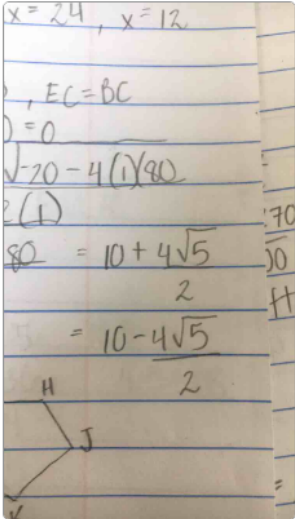 x = 24, x = 12
, EC = BC
) = 0
√-20 - 4(1)(80
2(1)
80 = 10 + 4√5
2
= 10 - 4√5
2
H
J
70
00
ft
=